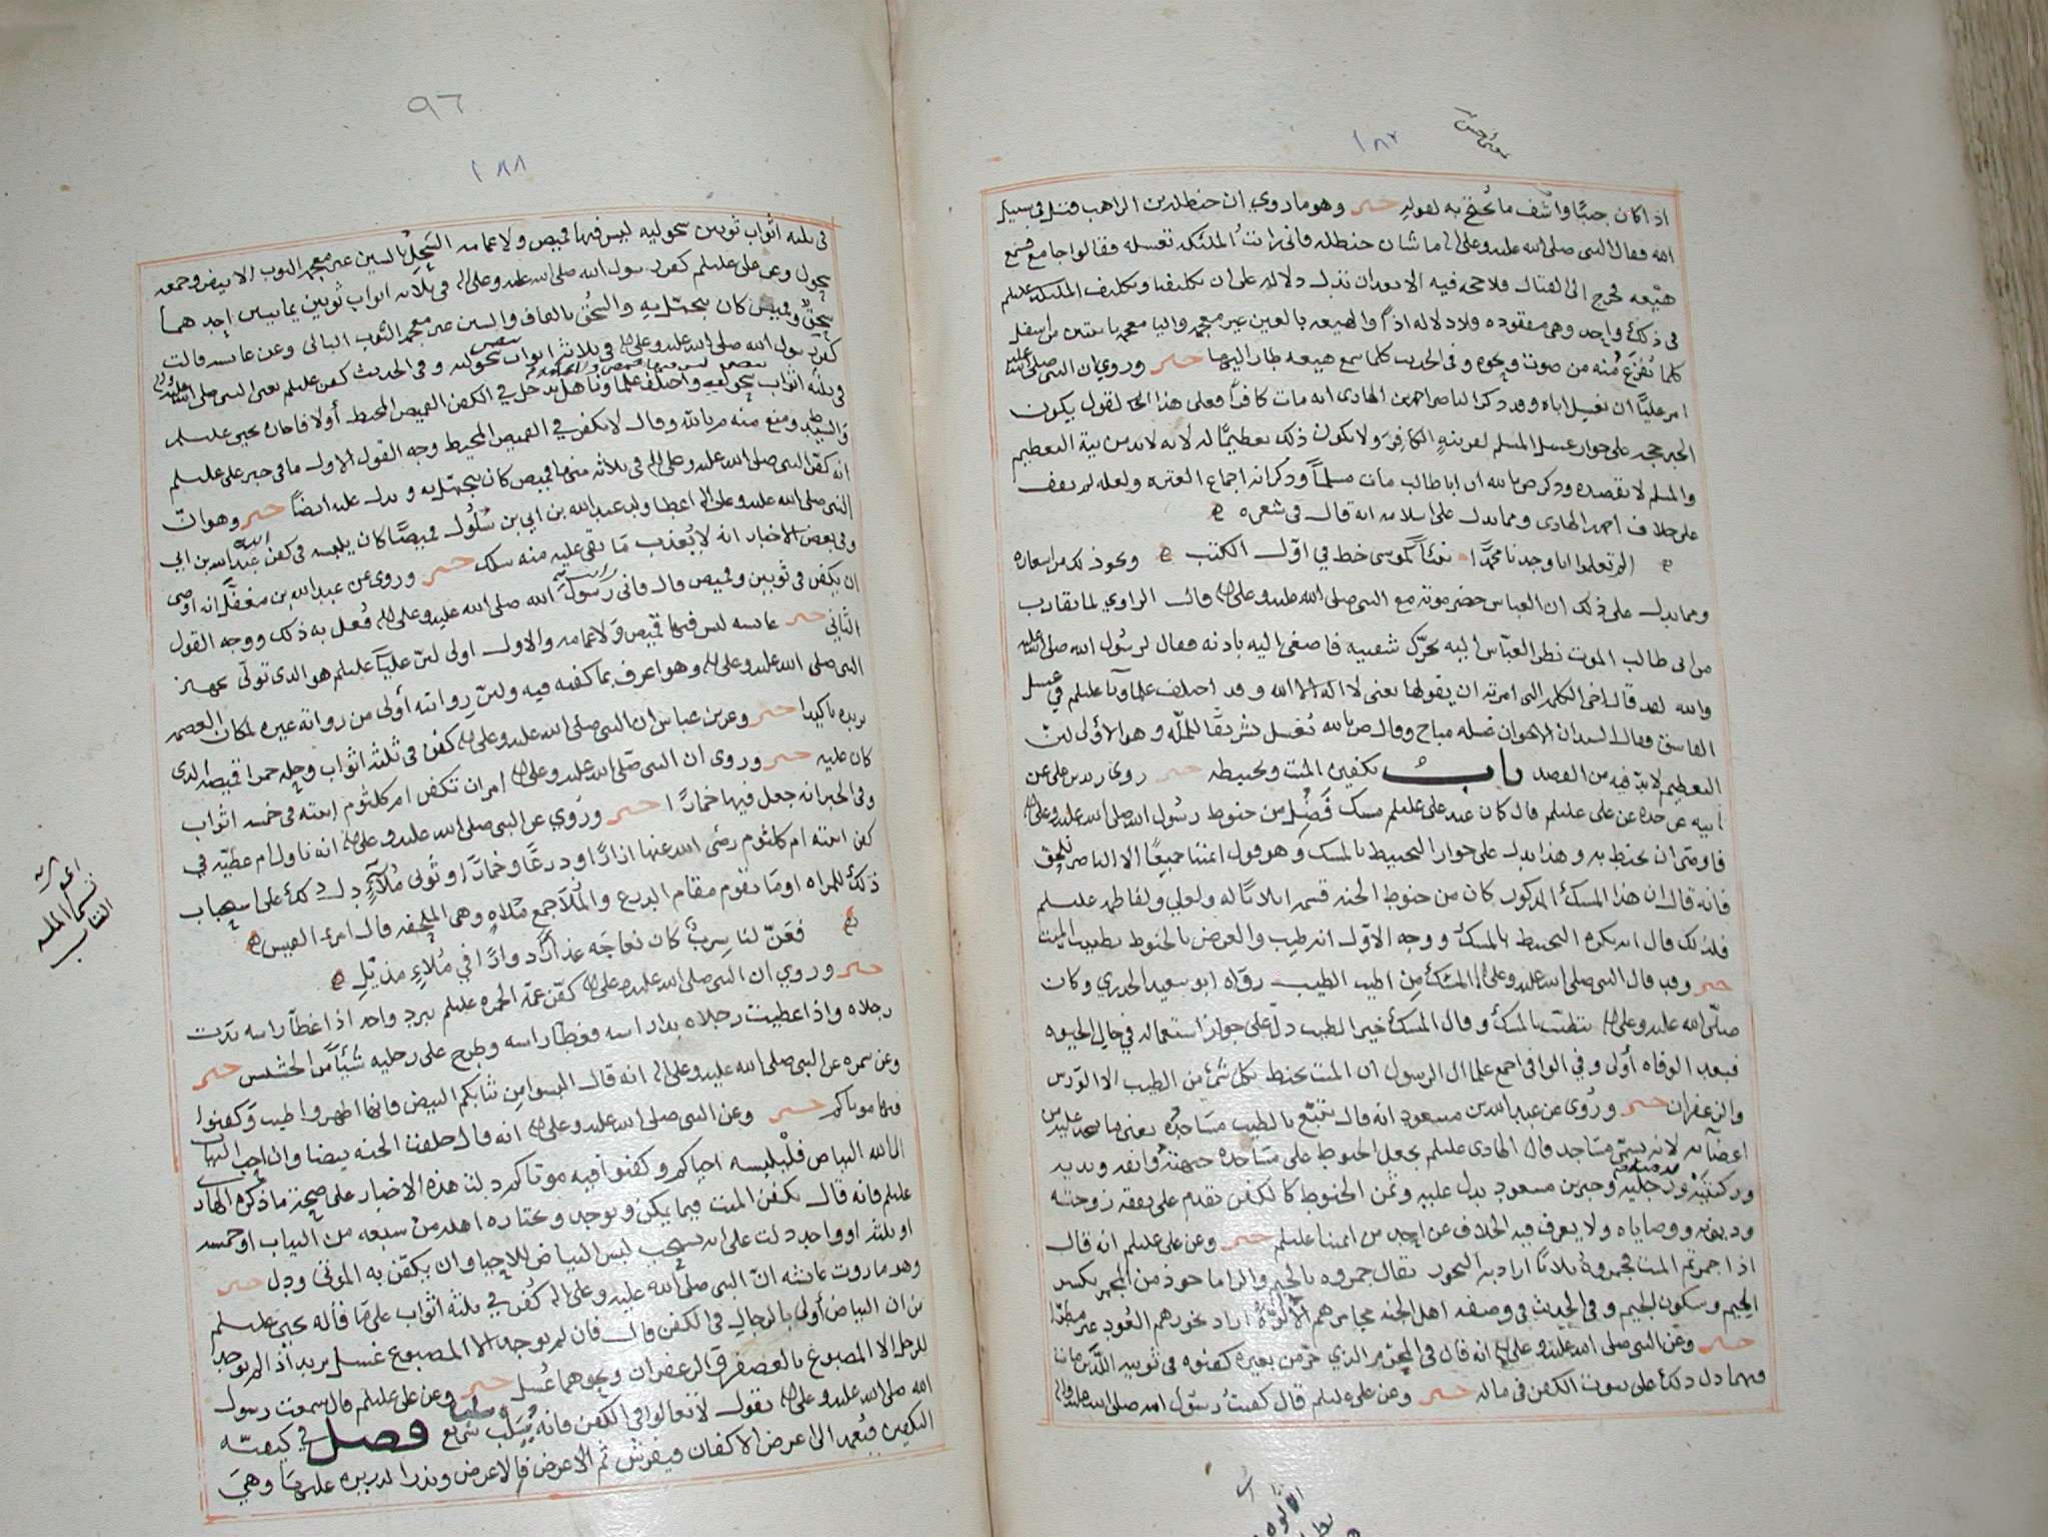 ١٨٧
اذا كان جنبًا واشف ما يحتج به لقوله خبر وهو ما روي ان حنظلة بن الراهب قتل في سبيل
الله فقال النبي صلى الله عليه وعلى اله ما شان حنظله فاني رايت الملئكه تغسله فقالوا جامع فسمع
هيّعه فخرج الى القتال فلا حجه فيه الا بعد ان بدل دلاله على ان تكليفنا وتكليف الملئكه عليلم
في ذلك واحد وهي مفقوده ولا دلاله اذاً والهيعه بالعين غير معجمه واليا معجمه باثنتين من اسفل
كلما تُفزع منه من صوت ونحوه وفي الحديث كلما سمع هيعه طار اليها خبر وروي ان النبي صلى الله عليه
امر عليًا ان يغسل اباه وقد ذكر الناصر احمد بن الهادي انه مات كافرًا فعلى هذا القول يكون
الخبر حجه على جواز غسل المسلم لقريبه الكافر ولا يكون ذلك تعظيمًا له لانه لابد من نية التعظيم
والمسلم لا يقصده وذكر ص بالله ان ابا طالب مات مسلمًا وذكر انه اجماع العتره ولعله لم يقف
على خلاف احمد الهادي ومما يدل على اسلامه انه قال في شعره
الم تعلموا انا وجدنا محمدًا نبيًا كموسى خط في اوّل الكتب ونحو ذلك من اشعاره
ومما يدل على ذلك ان العباس حضر موته مع النبي صلى الله عليه وعلى اله قال الراوي لما تقارب
من ابي طالب الموت نظر العبّاس اليه يحرّك شفتيه فاصغى اليه باذنه فقال لرسول الله صلى الله عليه
والله لقد قال اخي الكلمه التي امرته ان يقولها يعني لا اله الا الله وقد اختلف علماؤنا عليلم في غسل
الفاسق فقال السيدان الاخوان غسله مباح وقال ص بالله يُغسل تشريفًا للملّه وهو الأولى لان
التعظيم لابدّ فيه من القصد باب تكفين الميت وتحنيطه خبر روى زيد بن علي عن
ابيه عن جده عن علي عليلم قال كان عند علي عليلم مسك فَضَلَ من حنوط رسول الله صلى الله عليه وعلى اله
فاوصى ان يحنط به وهذا يدل على جواز التحنيط بالمسك وهو قول ائمتنا جميعًا الا الناصر للحق
فانه قال ان هذا المسك المذكور كان من حنوط الجنه قسمه اثلاثًا له ولعلي ولفاطمه عليلم
فلذلك قال انه يكره التحنيط بالمسك ووجه الاوّل انه طيب والغرض بالحنوط تطييب الميت
خبر وقد قال النبي صلى الله عليه وعلى اله المسك من اطيب الطيب رواه ابو سعيد الخدري وكان
صلّى الله عليه وعلى اله يتطيب بالمسك وقال المسك خير الطيب دلّ على جواز استعماله في حال الحيوه
فبعد الوفاه أولى وفي الوافي اجمع علما ال الرسول ان الميت يحنط بكل شي من الطيب الا الورس
والزعفران خبر ورُوي عن عبدالله بن مسعود انه قال يتتبّع بالطيب مساجده يعني ما سجد عليه من
اعضائه لانه يسمّى مساجد قال الهادي عليلم يجعل الحنوط على مساجده جبهته وانفه ويديه
وركبتيه ورجليه وخبر بن مسعود يدل عليه وثمن الحنوط كالكفن تقدم على نفقه زوجته
وديونه ووصاياه ولا يعرف فيه الخلاف عن احد من ائمتنا عليلم خبر وعن علي عليلم انه قال
اذا جمرتم الميت فجمروه ثلاثًا اراد به البخور يقال جمروه بالجمر والرا ماخوذ من المجمر بكسر
الجيم وسكون الجيم وفي الحديث في وصفه اهل الجنه مجامرهم الالوّة اراد بخورهم العُود غير مطرّا
خبر وعن النبي صلى الله عليه وعلى اله انه قال في المحرم الذي خرّ من بعيره كفنوه في ثوبيه اللذين مات
فيهما دل ذلك على ثبوت الكفن في ماله خبر وعن علي عليلم قال كفنتُ رسول الله صلى الله عليه واله
٩٦
١٨٨
في ثلثه اثواب ثوبين سحوليه ليس فيها قميص ولا عمامه السَحِل بالسين غير معجمه الثوب الابيض وجمعه
سحول وعن علي عليلم كفن رسول الله صلى الله عليه وعلى اله في ثلاثه اثواب ثوبين يمانيين احدهما
سحق وقميص كان يتجمّل به والسحق بالقاف والسين غير معجمه الثوب البالي وعن عائشه قالت
كفن رسول الله صلى الله عليه وعلى اله في ثلاثه اثواب سحوليه وفي الحديث كفن عليلم يعني النبي صلى الله عليه واله
في ثلثه اثواب سحوليه واختلف علماؤنا هل يدخل في الكفن القميص المخيط أولا فاجازه يحيى عليلم
والسيد ط ومنع منه م بالله وقال لا يكفن في القميص المخيط وجه القول الاول ما في خبر علي عليلم
انه كفن النبي صلى الله عليه وعلى اله في ثلاثه منها قميص كان يتجمّل به ويدل عليه ايضًا خبر وهو انّ
النبي صلى الله عليه وعلى اله اعطا ولد عبدالله بن ابي بن سَلُول قميصًا كان يلبسه في كفن عبدالله بن ابي
وفي بعض الاخبار انه لا يُعذب ما بقي عليه منه سلك خبر وروي عن عبدالله بن مغفّل انه اوصى
ان يكفن في ثوبين وقميص قال فاني رايت رسول الله صلى الله عليه وعلى اله فُعل به ذلك ووجه القول
الثاني خبر عائشه ليس فيها قميص ولا عمامه والاول اولى لانّ عليًا عليلم هو الذي تولّى تجهيز
النبي صلى الله عليه وعلى اله وهو اعرف بما كفنه فيه ولانّ روايته أولى من روايه غيره لمكان العصمه
يزيده تاكيدا خبر وعن بن عباس ان النبي صلى الله عليه وعلى اله كفن في ثلثه اثواب وحله حمرا قميصه الذي
كان عليه خبر وروى ان النبي صلى الله عليه وعلى اله امر ان تكفن ام كلثوم ابنته في خمسه اثواب
وفي الخبر انه جعل فيها خمارًا خبر ورَوي عن النبي صلى الله عليه وعلى اله انه ناول ام عطيّه في
كفن ابنته ام كلثوم رضي الله عنها ازارًا ودرعًا وخمارًا وثوبي مُلآءٍ دل ذلك على استحباب
ذلك للمراه او ما يقوم مقام الدرع والمُلآ جمع مُلاه وهي الملحفه قال امرء القيس
فعَنّ لنا سِربٌ كان نعاجَه عذارى دوارًا في مُلاءٍ مذيّلِ
خبر وروي ان النبي صلى الله عليه وعلى اله كفّن عمّه الحمزه عليلم ببرد واحد اذا غطّا راسه بدت
رجلاه واذا غطيت رجلاه بدا راسه فغطّا راسه وطرح على رجليه شيئًا من الحشيش خبر
وعن سمره عن النبي صلى الله عليه وعلى اله انه قال البسوا من ثيابكم البيض فانها اطهر واطيب وكفنوا
فيها موتاكم خبر وعن النبي صلى الله عليه وعلى اله انه قال خلقت الجنه بيضا وان احب الثياب
الى الله البياض فليلبسه احياكم وكفنوا فيه موتاكم دلت هذه الاخبار على صحة ما ذكره الهادي
عليلم فانه قال يكفن الميت فيما يمكن ويوجد ويختاره اهله من سبعه من الثياب او خمسه
او ثلثه او واحد دلت على انه يستحب لبس البياض للاحيا وان يكفّن به الموتى ودل خبر
وهو ما روت عائشه انّ النبي صلى الله عليه وعلى اله كُفن في ثلثه اثواب على ما قاله يحيى عليلم
من ان البياض أولى بالرجال في الكفن قال فان لم يوجد الا المصبوغ غسل يريد اذا لم يوجد
للرجل الا المصبوغ بالعصفر والزعفران ونحوهما غُسل خبر وعن علي عليلم قال سمعت رسول
الله صلى الله عليه وعلى اله يقول لا تغالوا في الكفن فانه يُسلب سلبا سريع فصل في كيفيّه
التكفين فيعمد الى اعرض الاكفان فيفرش ثم الاعرض فالاعرض ويذرا لذريره عليها وهي